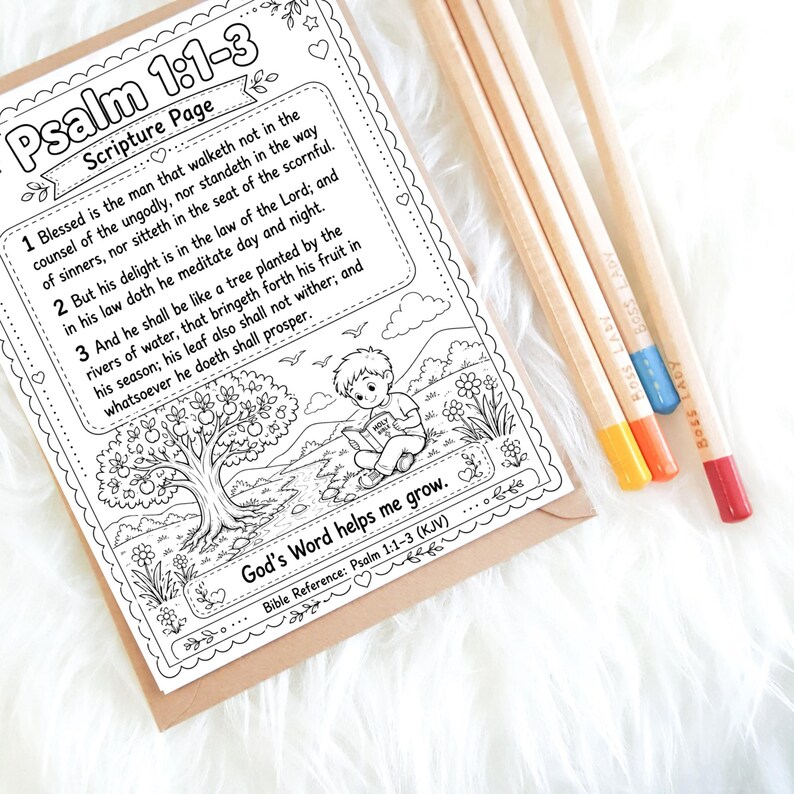 Psalm 1:1-3
Scripture Page
1 Blessed is the man that walketh not in the
counsel of the ungodly, nor standeth in the way
of sinners, nor sitteth in the seat of the scornful.
2 But his delight is in the law of the Lord; and
in his law doth he meditate day and night.
3 And he shall be like a tree planted by the
rivers of water, that bringeth forth his fruit in
his season; his leaf also shall not wither; and
whatsoever he doeth shall prosper.
HOLY
BIBLE
God's Word helps me grow.
Bible Reference: Psalm 1:1-3 (KJV)
BOSS LADY
BOSS LADY
BOSS LADY